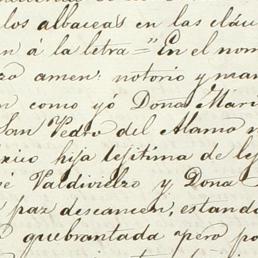 los albaceas en las cláu
n á la letra = "En el nom
amen: notorio y man
n como yó Doña Mari
San Pedro del Alamo
xico hija lejitima de le
é Valdivielzo y Doña
paz descancen, estando
quebrantada pero po